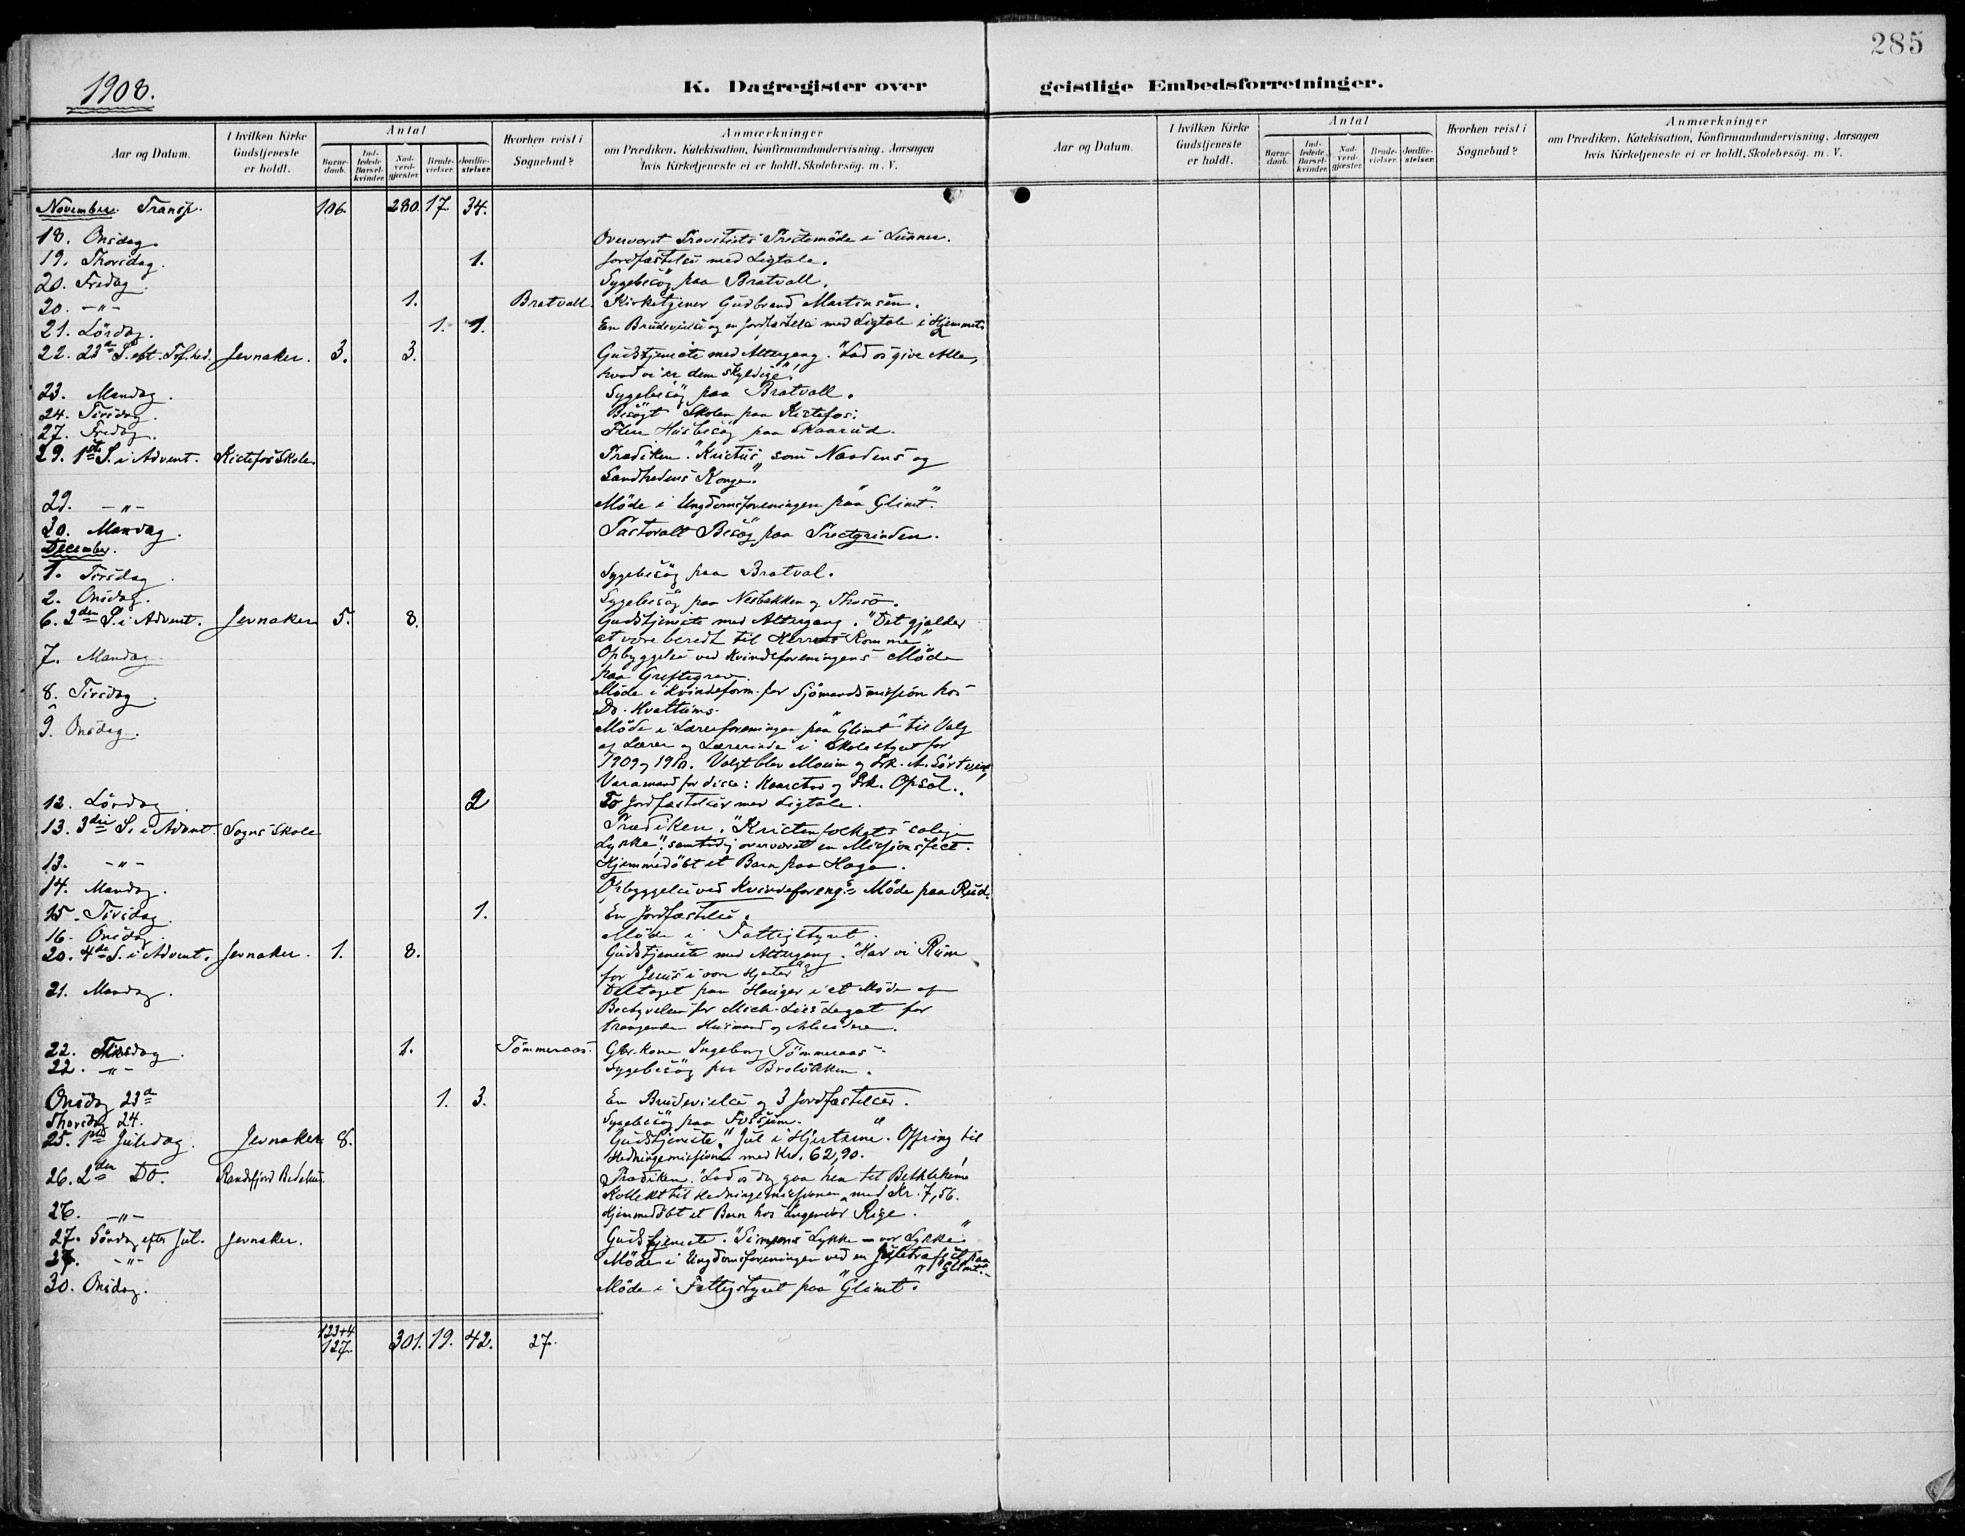 285
1908.
K. Dagregister over geistlige Embedsforretninger.
Aar og Datum.
I hvilken Kirke Gudstjeneste er holdt.
Antal
Barnedaab.
Indledede Barselkvinder.
Nadverdgjæster.
Brudevielser.
Jordfæstelser.
Hvorhen reist i Sognebud?
Anmærkninger
om Prædiken, Katekisation, Konfirmandundervisning, Aarsagen
hvis Kirketjeneste ei er holdt, Skolebesög. m. V.
Aar og Datum.
I hvilken Kirke Gudstjeneste er holdt.
Antal
Barnedaab.
Indledede Barselkvinder.
Nadverdgjæster.
Brudevielser.
Jordfæstelser.
Hvorhen reist i Sognebud?
Anmærkninger
om Prædiken, Katekisation, Konfirmandundervisning, Aarsagen
hvis Kirketjeneste ei er holdt, Skolebesög. m. V.
November. Transp. 106. 280. 17. 34.
18. Onsdag. Overværet Provstiets Præstemöde i Lunner.
19. Thorsdag. 1. Jordfæstelse med Ligtale.
20. Fredag. Sygebesög paa Bratvall.
20. -"- 1. Bratvall. Kirketjener Gudbrand Martinsen.
21. Lördag. 1. 1. En Brudevielse og en Jordfæstelse med Ligtale i Hjemmet.
22. 23de S. eft. Tref.hed. Jevnaker. 3. 3. Gudstjeneste med Altergang. "Lad os give Alle,
hvad vi er dem skyldige".
23. Mandag. Sygebesög paa Bratvall.
24. Tirsdag. Besögt Skolen paa Kistefos.
27. Fredag. Flere Husbesög paa Skaarud.
29. 1ste S. i Advent. Kistefos Skole. Prædiken. "Kristus som Naadens og
Sandhedens Konge."
29. -"- Möde i Ungdomsforeningen paa "Glimt".
30. Mandag. Pastoralt Besög paa Præstgrinden.
December.
1. Tirsdag. Sygebesög paa Bratval.
2. Onsdag. Sygebesög paa Nesbakken og Thosö.
6. 2den S. i Advent. Jevnaker 5. 8. Gudstjeneste med Altergang. "Det gjælder
at være beredt til Herrens Komme".
7. Mandag. Opbyggelse ved Kvindeforeningens Möde
paa Griftegrav.
8. Tirsdag. Möde i Kvindeforen. for Sjömandsmission hos
Do. Hvattums.
9. Onsdag. Möde i Lærerforeningen paa "Glimt" til Valg
af Lærer og Lærerinde i Skolestyret for
1909 og 1910. Valgt blev Moum og Frk. A.
Varamænd for disse: og Frk. Opsal.
12. Lördag. 2 To Jordfæstelser med Ligtale.
13. 3die S. i Advent. Sogns Skole Prædiken. "Kristenfolkets salige
Lykke", samtidig overværet en Missionsfest.
13. -"- Hjemmedöbt et Barn paa Haga.
14. Mandag. Opbyggelse ved Kvindeforeng.s Möde paa Rud.
15. Tirsdag. 1. En Jordfæstelse.
16. Onsdag. Möde i Fattigstyret.
20. 4de S. i Advent. Jevnaker. 1. 8. Gudstjeneste med Altergang. "Har vi Rum
for Jesus i vore Hjerter"?
21. Mandag. Deltaget paa Hauger i et Möde af
Bestyrelsen for Mich. Lies Legat for
trængende Husmænd og Arbeidere.
22. Tirsdag. 1. Tömmeraas. Gbr.kone Ingeborg Tömmeraas.
22. -"- Sygebesög paa Brolökken.
Onsdag 23de 1. 3. En Brudevielse og 3 Jordfæstelser.
Thorsdag 24. Sygebesög paa Fossum.
25. 1ste Juledag. Jevnaker 8. Gudstjeneste. "Jul i Hjerterne". Offring til
Hedningemissionen med Kr. 62,90.
26. 2den Do. Randsfjord Bedehus. Prædiken. "Lad os dog gaa hen til Bethlehem"
Kollekt til Hedningemissionen med Kr. 7,56.
26. -"- Hjemmedöbt et Barn hos Ingeniör Rige.
27. Söndag efter Jul. Jevnaker. Gudstjeneste. "Simeons Lykke – vor Lykke".
27. -"- Möde i Ungdomsforeningen ved en Juletræfest paa
"Glimt".
30. Onsdag. Möde i Fattigstyret paa "Glimt".
123+4
127. 301. 19. 42. 27.